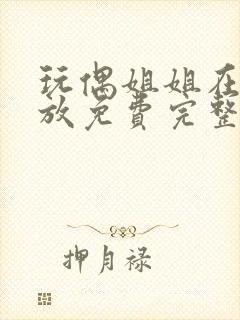 玩偶姐姐在
放免费完整
押月禄